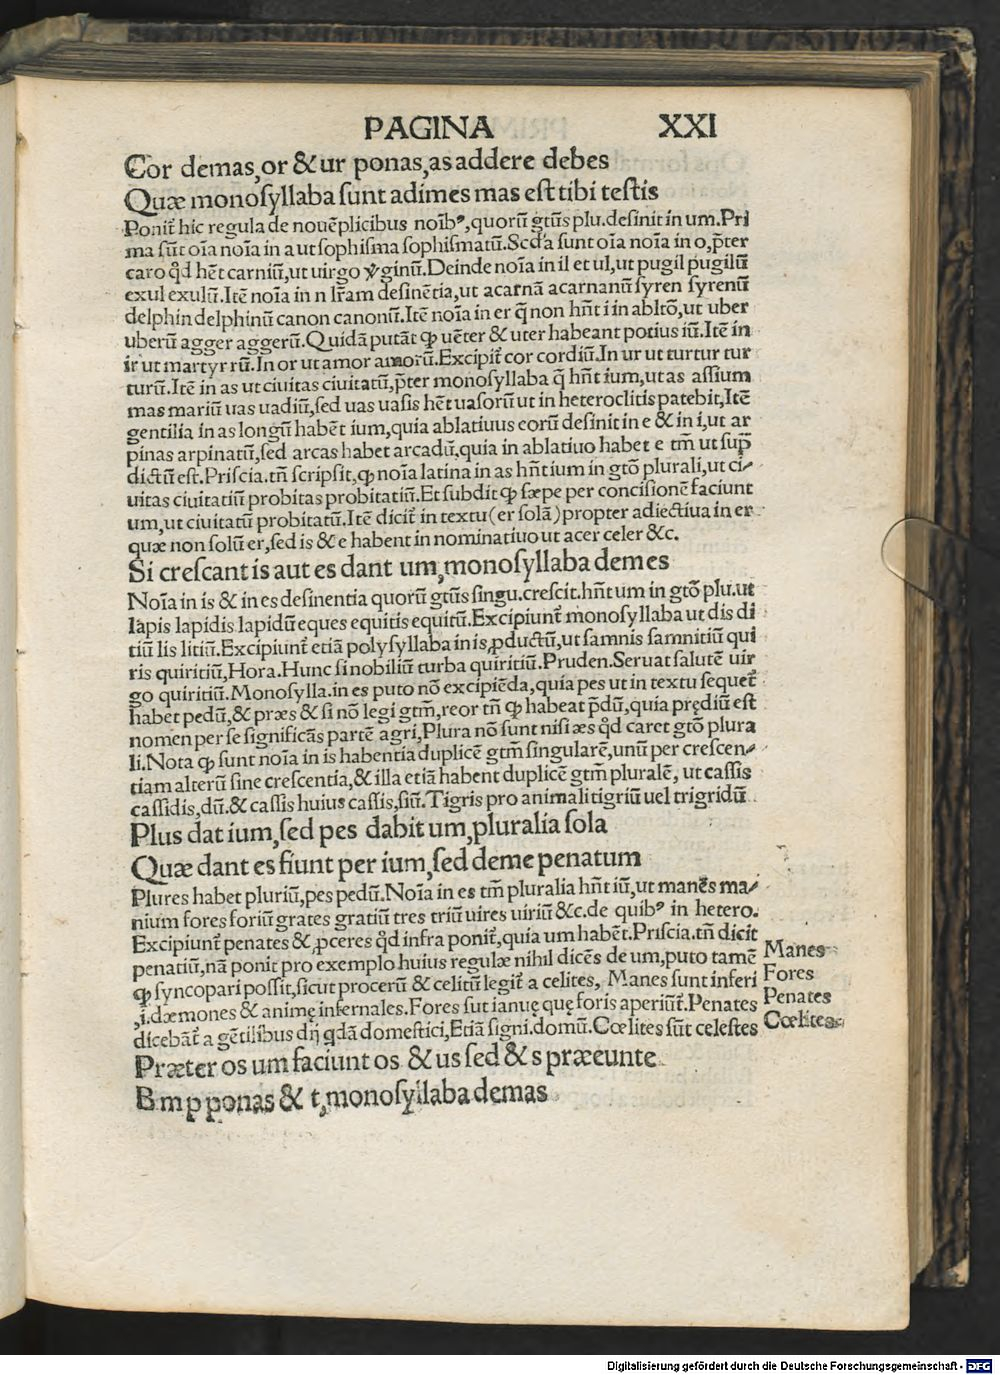 PAGINA XXI
Cor demas, or & ur ponas, as addere debes
Quæ monosyllaba sunt adimes mas est tibi testis
Ponit᷑ hic regula de nouẽplicibus noĩbꝰ, quorũ gtũs plu. desinit in um. Pri
ma sũt oĩa noĩa in a ut sophisma sophismatũ. Scd'a sunt oĩa noĩa in o, p̃ter
caro qd̃ hẽt carniũ, ut uirgo ỹginũ. Deinde noĩa in il et ul, ut pugil pugilũ
exul exulũ. Itẽ noĩa in n lr̃am desinẽtia, ut acarnã acarnanũ syren syrenũ
delphin delphinũ canon canonũ. Itẽ noĩa in er q̃ non hñt i in abltõ, ut uber
uberũ agger aggerũ. Quidã putãt ꝙ uẽter & uter habeant potius iũ. Itẽ in
ir ut martyr rũ. In or ut amor amorũ. Excipit᷑ cor cordiũ. In ur ut turtur tur
turũ. Itẽ in as ut ciuitas ciuitatũ, p̃ter monosyllaba q̃ hñt ium, ut as assium
mas mariũ uas uadiũ, sed uas uasis hẽt uasorũ ut in heteroclitis patebit, Itẽ
gentilia in as longũ habẽt ium, quia ablatiuus eorũ desinit in e & in i, ut ar
pinas arpinatũ, sed arcas habet arcadũ, quia in ablatiuo habet e tm̃ ut sup̃
dictũ est. Priscia. tñ scripsit, ꝙ noĩa latina in as hñt ium in gtõ plurali, ut ci⸗
uitas ciuitatiũ probitas probitatiũ. Et subdit ꝙ sæpe per concisionẽ faciunt
um, ut ciuitatũ probitatũ. Itẽ dicit᷑ in textu (er solã) propter adiectiua in er
quæ non solũ er, sed is & e habent in nominatiuo ut acer celer &c.
Si crescant is aut es dant um, monosyllaba demes
Noĩa in is & in es desinentia quorũ gtũs singu. crescit. hñt um in gtõ plu. ut
lapis lapidis lapidũ eques equitis equitũ. Excipiunt᷑ monosyllaba ut dis di
tiũ lis litiũ. Excipiunt᷑ etiã polysyllaba in is, ꝓductũ, ut samnis samnitiũ qui
ris quiritiũ, Hora. Hunc si nobiliũ turba quiritiũ. Pruden. Seruat salutẽ uir
go quiritiũ. Monosylla. in es puto nõ excipiẽda, quia pes ut in textu sequet᷑
habet pedũ, & præs & si nõ legi gtm̃, reor tñ ꝙ habeat p̃dũ, quia prędiũ est
nomen per se significãs partẽ agri, Plura nõ sunt nisi æs qd̃ caret gtõ plura
li. Nota ꝙ sunt noĩa in is habentia duplicẽ gtm̃ singularẽ, unũ per crescen⸗
tiam alterũ sine crescentia, & illa etiã habent duplicẽ gtm̃ pluralẽ, ut cassis
cassidis, dũ. & cassis huius cassis, siũ. Tigris pro animali tigriũ uel trigridũ
Plus dat ium, sed pes dabit um, pluralia sola
Quæ dant es fiunt per ium, sed deme penatum
Plures habet pluriũ, pes pedũ. Noĩa in es tm̃ pluralia hñt iũ, ut manẽs ma⸗
nium fores foriũ grates gratiũ tres triũ uires uiriũ &c. de quibꝰ in hetero.
Excipiunt᷑ penates & ꝓceres qd̃ infra ponit᷑, quia um habẽt. Priscia. tñ dicit
penatiũ, nã ponit pro exemplo huius regulæ nihil dicẽs de um, puto tamẽ
ꝙ syncopari possit, sicut procerũ & celitũ legit᷑ a celites, Manes sunt inferi
.i. dæmones & animę infernales. Fores sũt ianuę quę foris aperiũt᷑. Penates
dicebãt᷑ a gẽtilibus dij qdã domestici, Etiã signi. domũ. Cœlites sũt celestes
Manes
Fores
Penates
Cœlites
Præter os um faciunt os & us sed & s præeunte
B m p ponas & t, monosyllaba demas
Digitalisierung gefördert durch die Deutsche Forschungsgemeinschaft - DFG